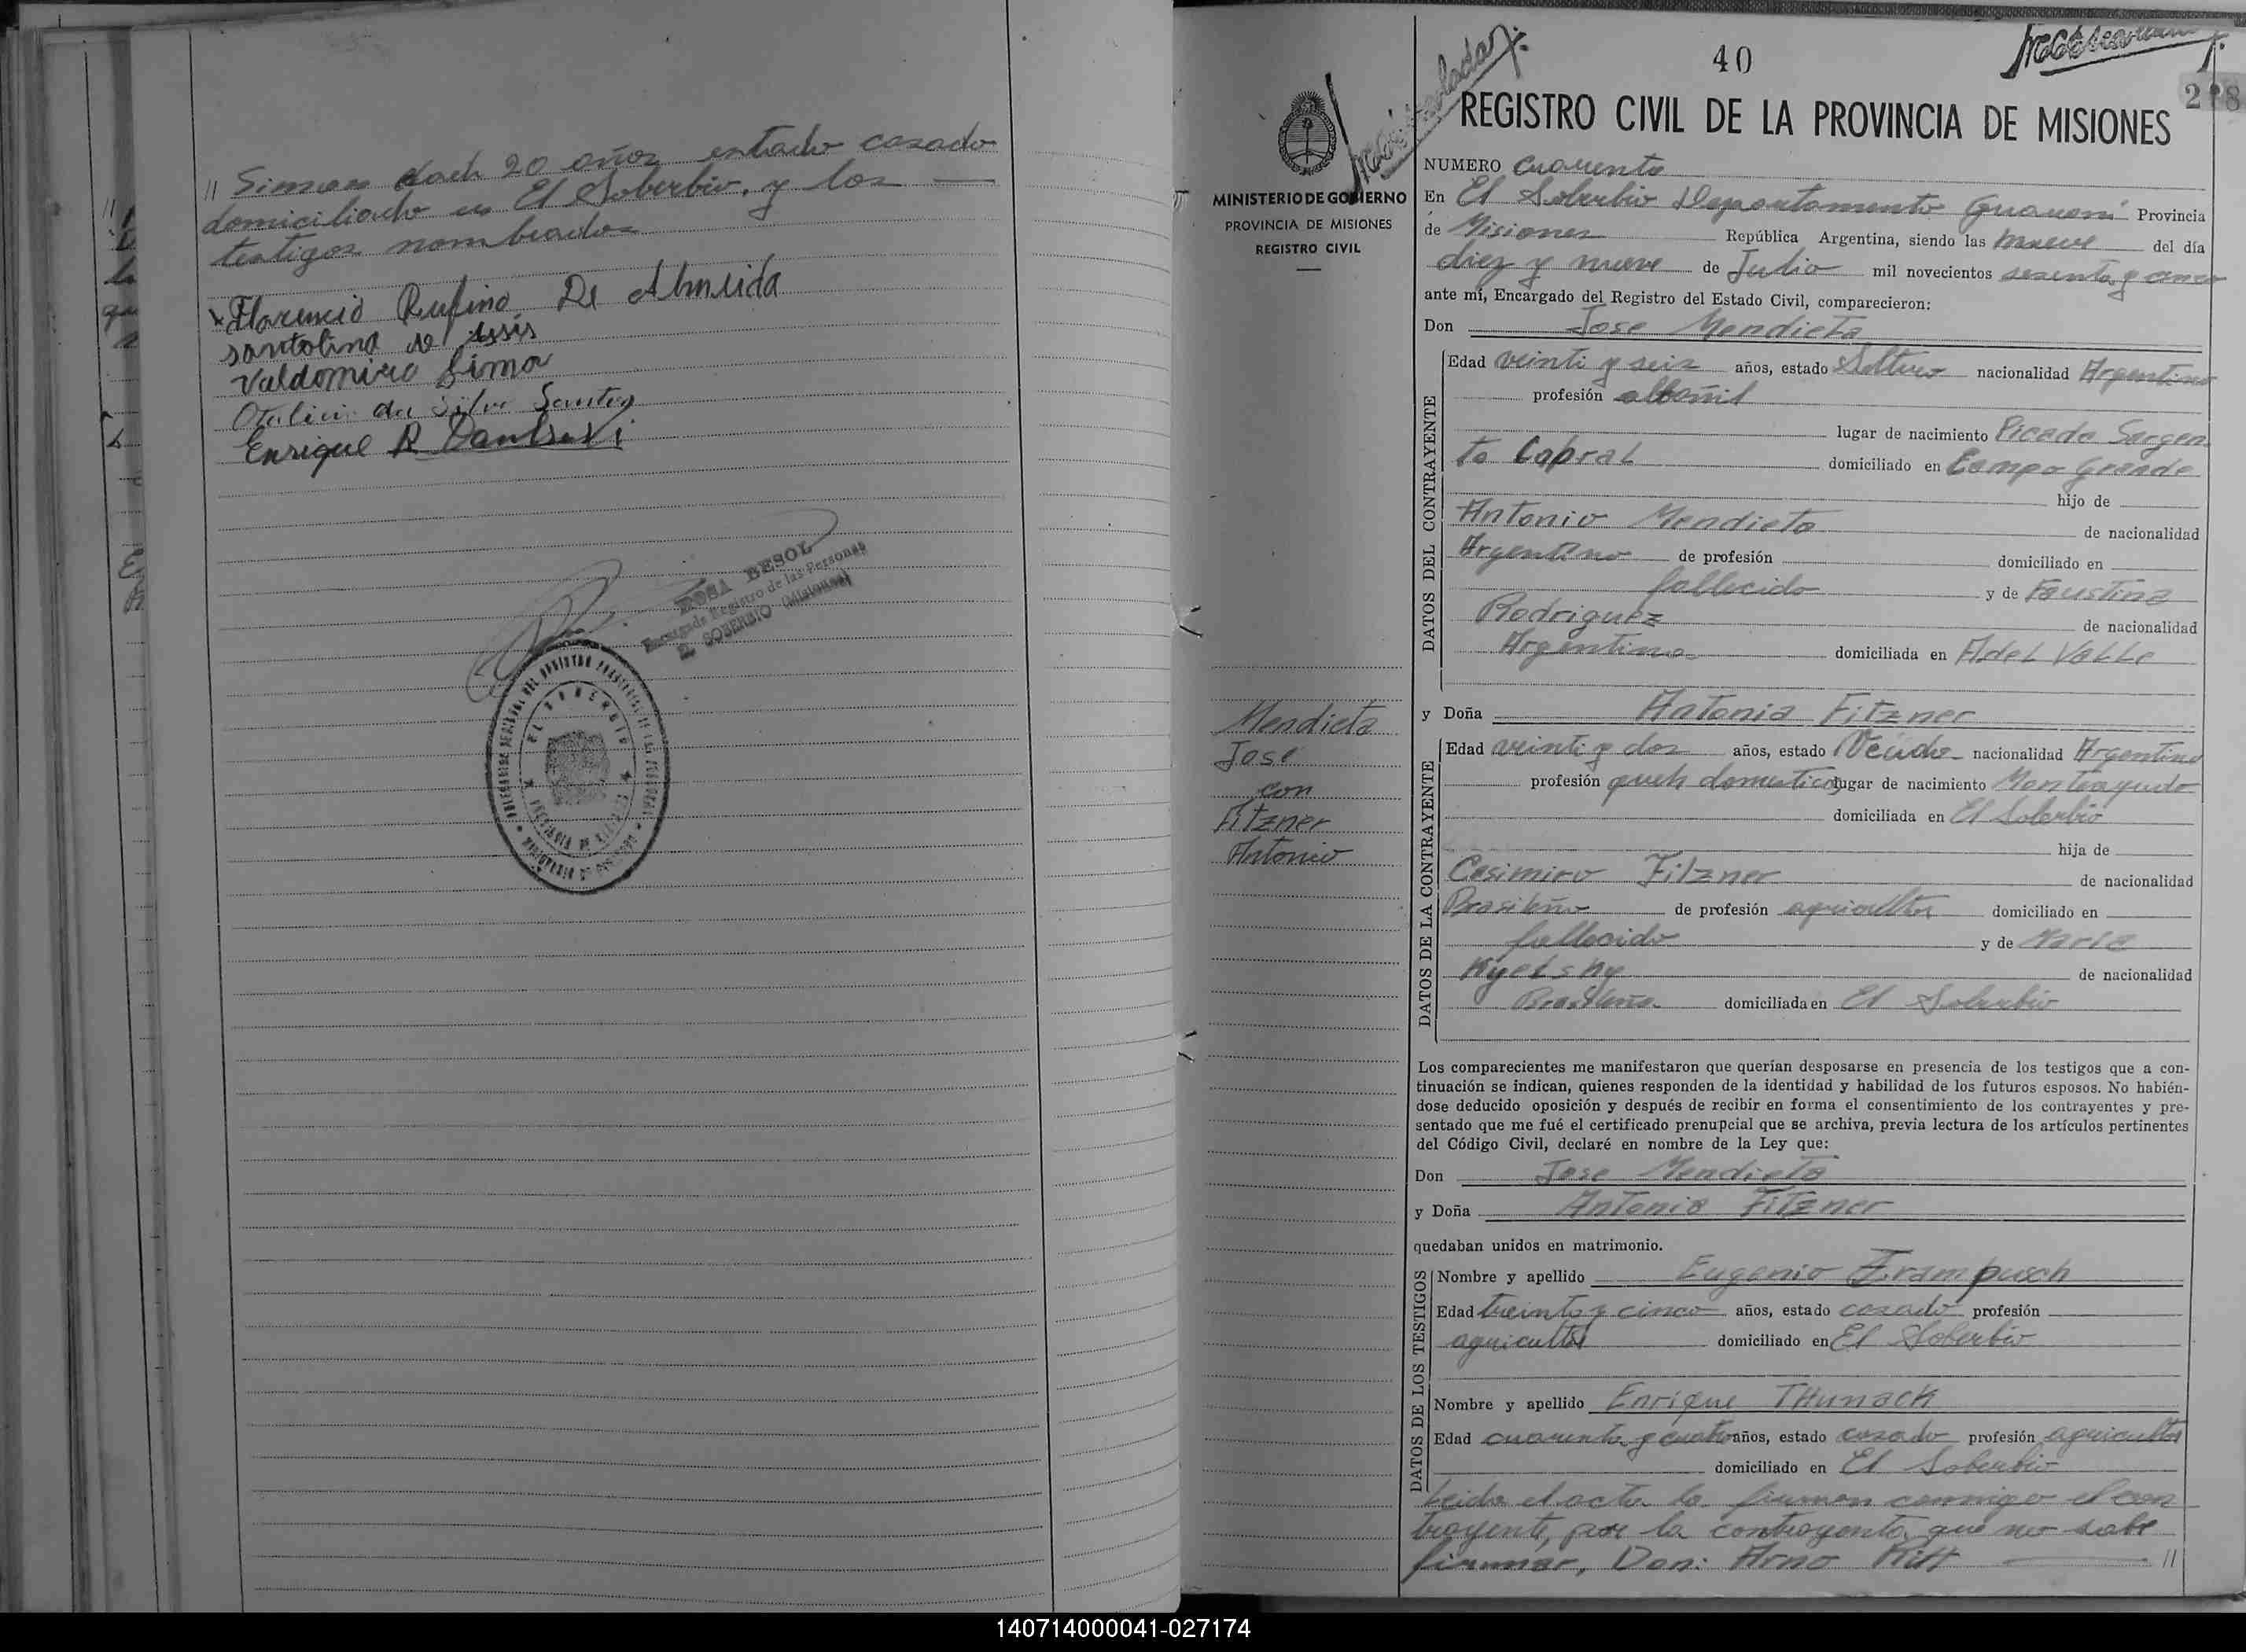 // Simon Bach 20 años estado casado
domiciliado en El Soberbio, y los —
testigos nombrados
Florencio Rufino De Almeida
santolina de Assis
Valdomiro Lima
Otalicio da Silva Santos
Enrique R
ROSA BESOL
Encargada Registro de las Personas
EL SOBERBIO (Misiones)
EL SOBERBIO
PROVINCIA DE MISIONES
40
218
REGISTRO CIVIL DE LA PROVINCIA DE MISIONES
MINISTERIO DE GOBIERNO
PROVINCIA DE MISIONES
REGISTRO CIVIL
NUMERO cuarenta
En El Soberbio Departamento Guaraní Provincia
de Misiones República Argentina, siendo las nueve del día
diez y nueve de Julio mil novecientos sesenta y cinco
ante mí, Encargado del Registro del Estado Civil, comparecieron:
Don Jose Mendieta
DATOS DEL CONTRAYENTE
Edad veinti y seis años, estado Soltero nacionalidad Argentino
profesión albañil
lugar de nacimiento Picada Sargen
to Cabral domiciliado en Campo Grande
hijo de
Antonio Mendieta de nacionalidad
Argentino de profesión domiciliado en
fallecido y de Faustina
Rodriguez de nacionalidad
Argentina domiciliada en A del Valle
Mendieta
Jose
con
Fitzner
Antonia
y Doña Antonia Fitzner
DATOS DE LA CONTRAYENTE
Edad veinti y dos años, estado Viuda nacionalidad Argentina
profesión queh domesticos lugar de nacimiento Monteagudo
domiciliada en El Soberbio
hija de
Casimiro Fitzner de nacionalidad
Brasileño de profesión agricultor domiciliado en
fallecido y de Maria
de nacionalidad
Brasileña domiciliada en El Soberbio
Los comparecientes me manifestaron que querían desposarse en presencia de los testigos que a con-
tinuación se indican, quienes responden de la identidad y habilidad de los futuros esposos. No habién-
dose deducido oposición y después de recibir en forma el consentimiento de los contrayentes y pre-
sentado que me fué el certificado prenupcial que se archiva, previa lectura de los artículos pertinentes
del Código Civil, declaré en nombre de la Ley que:
Don Jose Mendieta
y Doña Antonia Fitzner
quedaban unidos en matrimonio.
DATOS DE LOS TESTIGOS
Nombre y apellido Eugenio Krampusch
Edad treinta y cinco años, estado casado profesión
agricultor domiciliado en El Soberbio
Nombre y apellido Enrique THunack
Edad cuarenta y cuatro años, estado casado profesión agricultor
domiciliado en El Soberbio
Leida el acta la firman conmigo el con
trayente, por la contrayenta que no sabe
firmar, Don: Arno Ritt — //
140714000041-027174